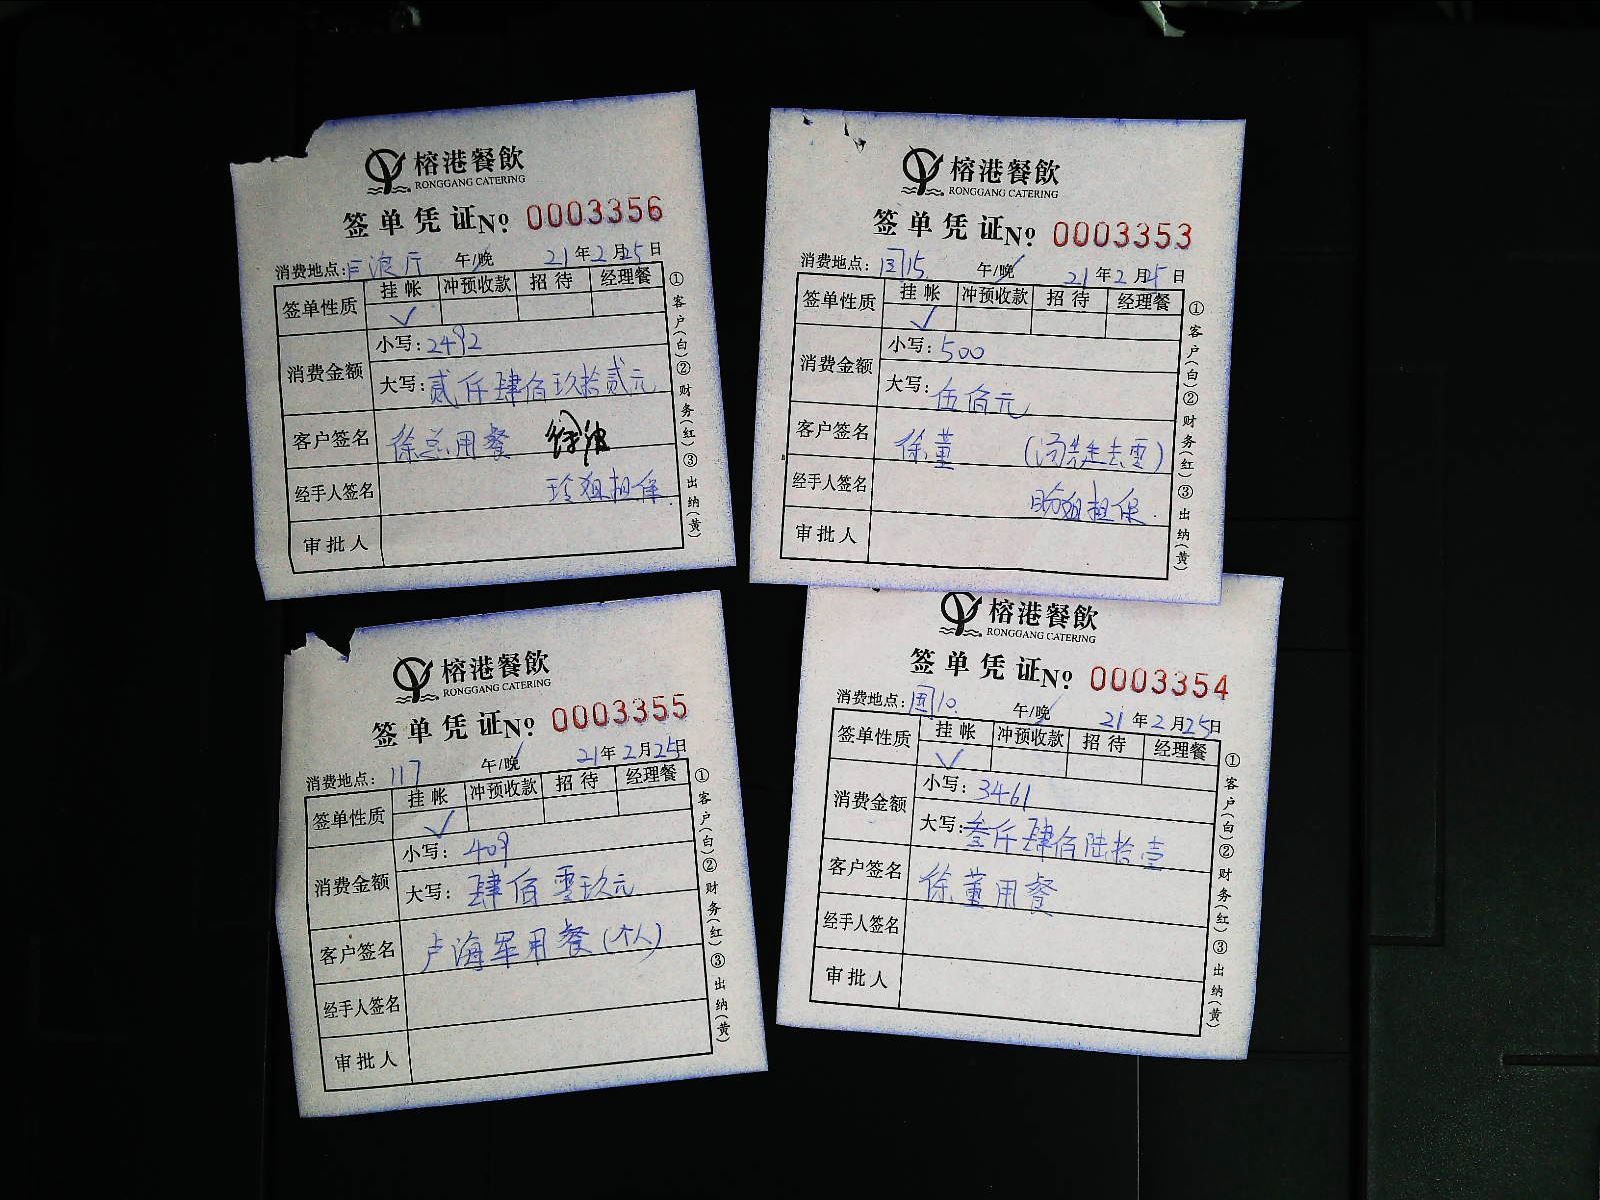 榕港餐飲
RONGGANG CATERING
签单凭证№ 0003356
消费地点: 午/晚 21年2月25日
签单性质 挂帐 冲预收款 招待 经理餐
✓
消费金额 小写:2492
大写:贰仟肆佰玖拾贰元
客户签名 徐总用餐 徐波
经手人签名 玲姐担保
审批人
①客户(白)②财务(红)③出纳(黄)
榕港餐飲
RONGGANG CATERING
签单凭证№ 0003353
消费地点: 15 午/晚 21年2月25日
签单性质 挂帐 冲预收款 招待 经理餐
✓
消费金额 小写:500
大写:伍佰元
客户签名 徐董
经手人签名 姐担保
审批人
①客户(白)②财务(红)③出纳(黄)
榕港餐飲
RONGGANG CATERING
签单凭证№ 0003355
消费地点: 117 午/晚 21年2月25日
签单性质 挂帐 冲预收款 招待 经理餐
✓
消费金额 小写:409
大写:肆佰零玖元
客户签名 卢海军用餐(个人)
经手人签名
审批人
①客户(白)②财务(红)③出纳(黄)
榕港餐飲
RONGGANG CATERING
签单凭证№ 0003354
消费地点: 10 午/晚 21年2月25日
签单性质 挂帐 冲预收款 招待 经理餐
✓
消费金额 小写:3461
大写:叁仟肆佰陆拾壹
客户签名 徐董用餐
经手人签名
审批人
①客户(白)②财务(红)③出纳(黄)